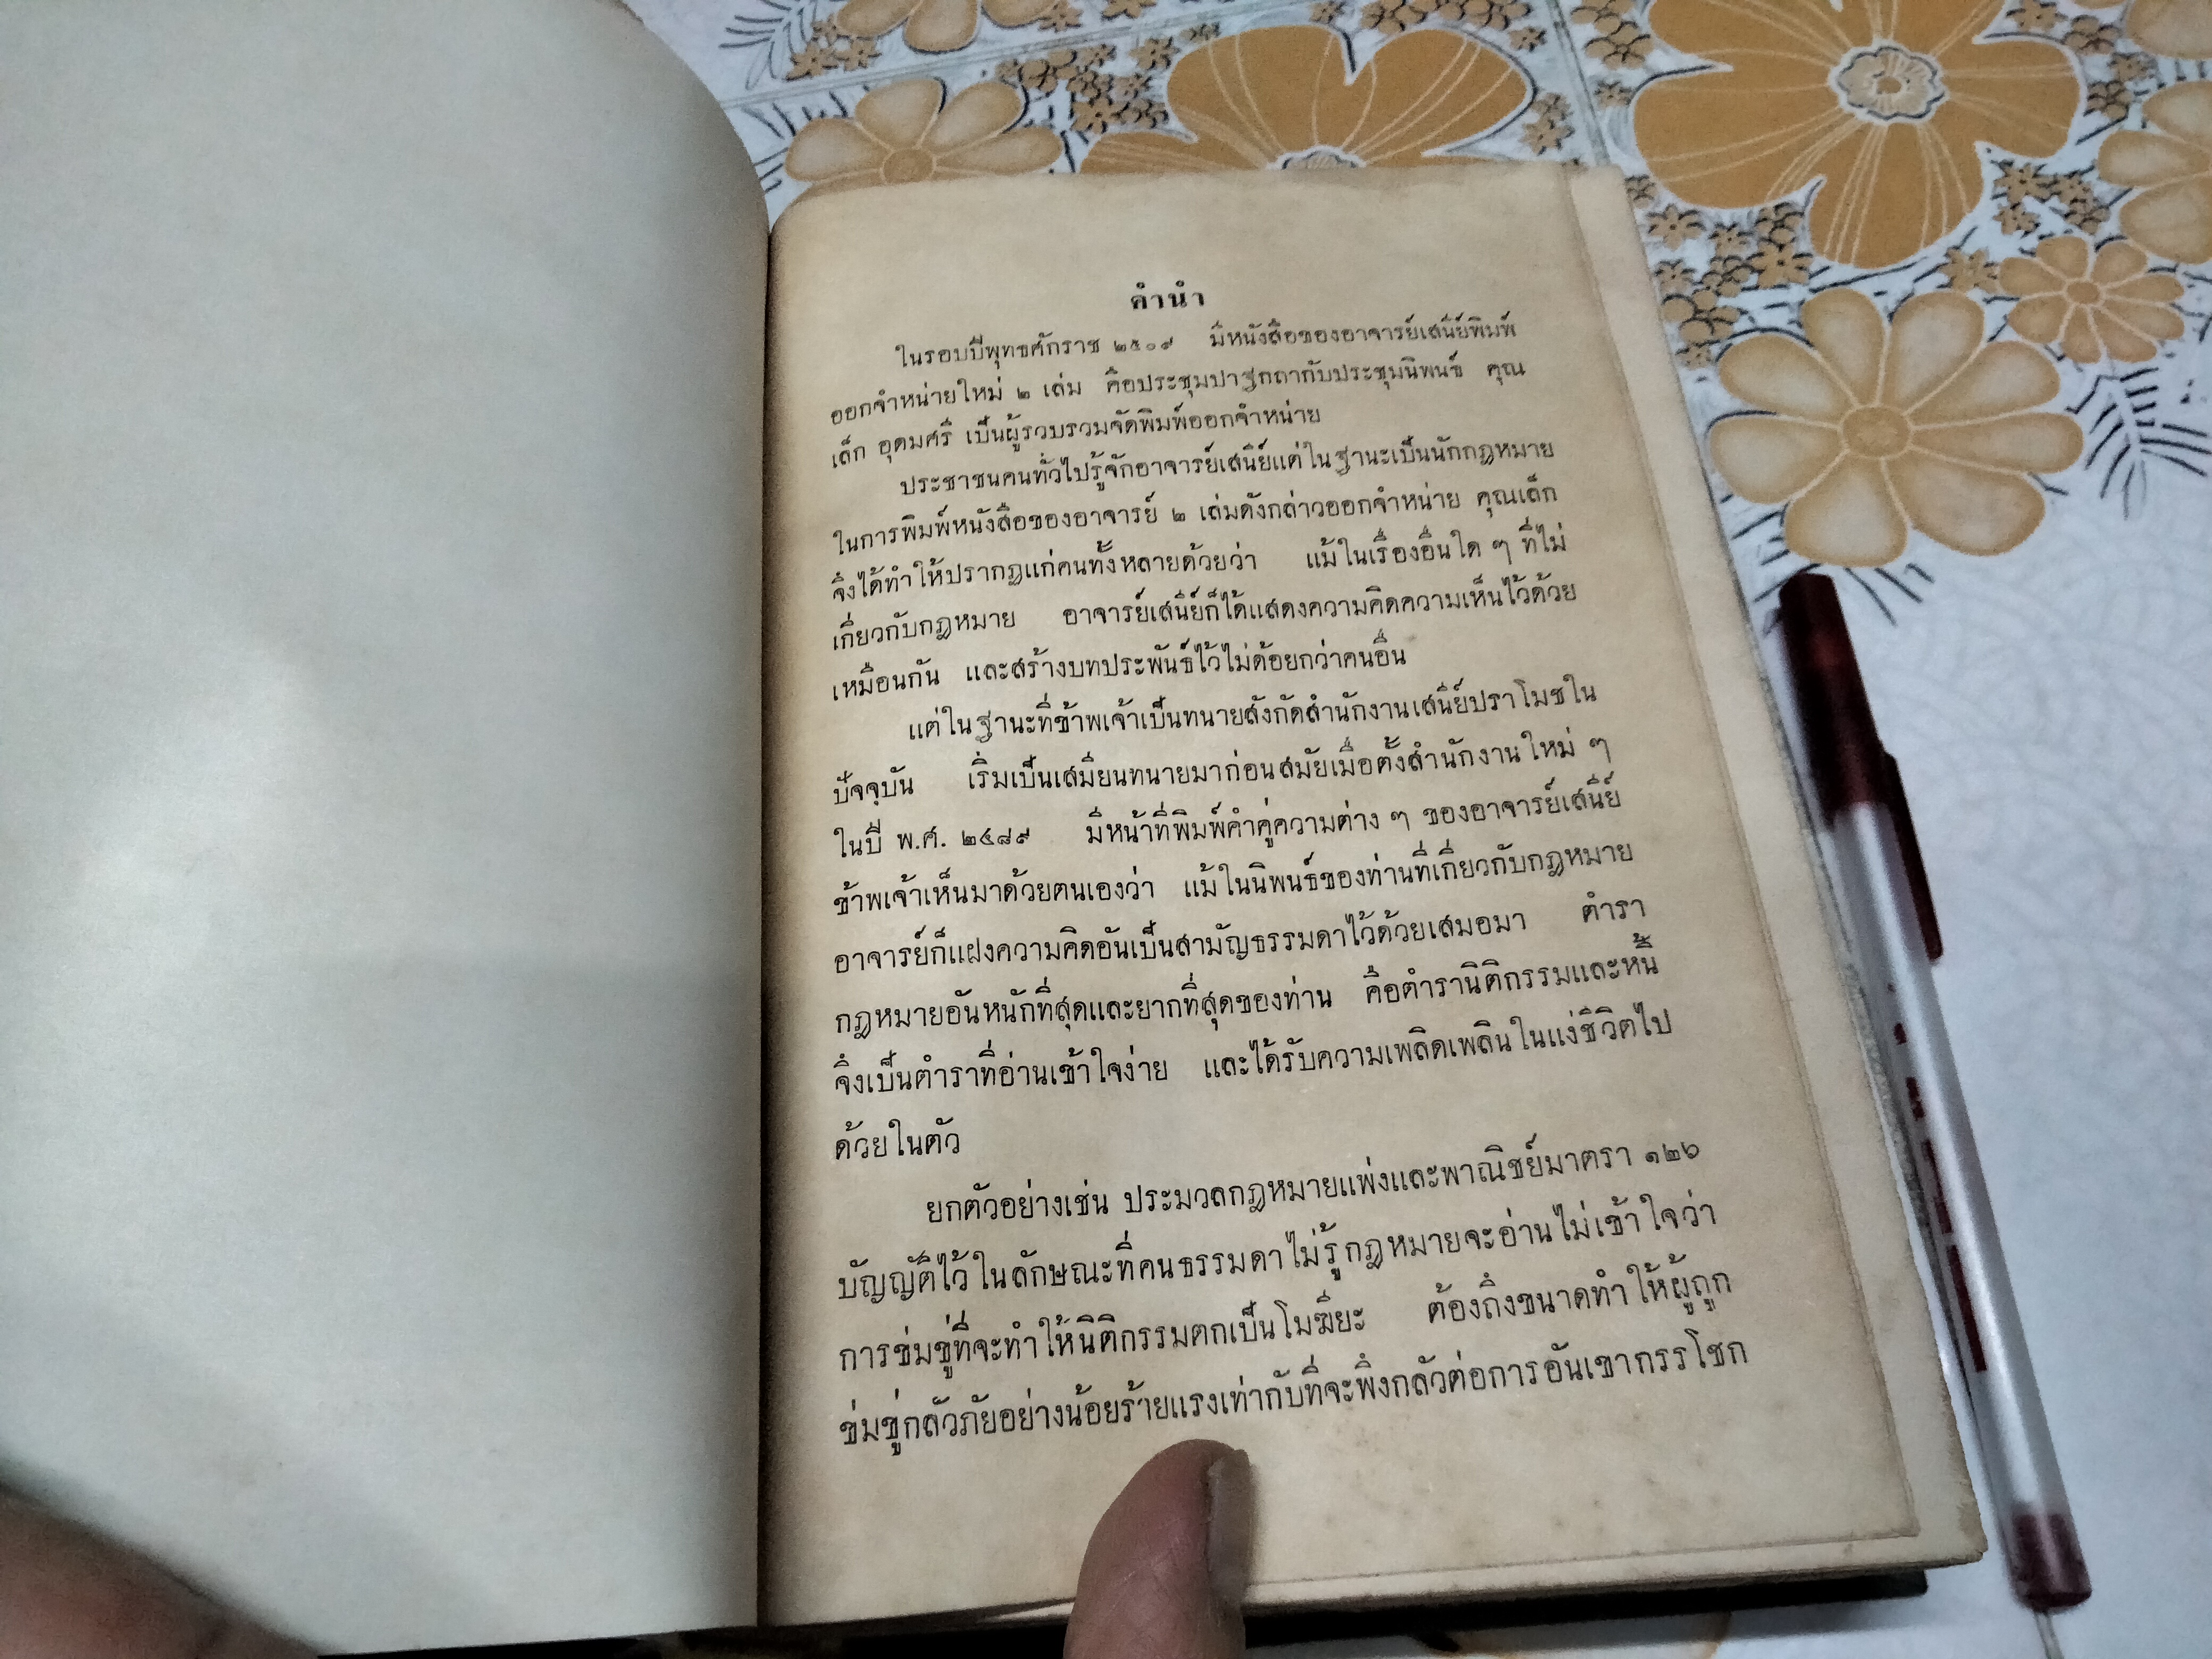 คำนำ
ในรอบปีพุทธศักราช ๒๕๐๙ มีหนังสือของอาจารย์เสนีย์พิมพ์
ออกจำหน่ายใหม่ ๒ เล่ม คือประชุมปาฐกถากับประชุมนิพนธ์ คุณ
เล็ก อุดมศรี เป็นผู้รวบรวมจัดพิมพ์ออกจำหน่าย
ประชาชนคนทั่วไปรู้จักอาจารย์เสนีย์แต่ในฐานะเป็นนักกฎหมาย
ในการพิมพ์หนังสือของอาจารย์ ๒ เล่มดังกล่าวออกจำหน่าย คุณเล็ก
จึงได้ทำให้ปรากฏแก่คนทั้งหลายด้วยว่า แม้ในเรื่องอื่นใด ๆ ที่ไม่
เกี่ยวกับกฎหมาย อาจารย์เสนีย์ก็ได้แสดงความคิดความเห็นไว้ด้วย
เหมือนกัน และสร้างบทประพันธ์ไว้ไม่ด้อยกว่าคนอื่น
แต่ในฐานะที่ข้าพเจ้าเป็นทนายสังกัดสำนักงานเสนีย์ปราโมชใน
ปัจจุบัน เริ่มเป็นเสมียนทนายมาก่อนสมัยเมื่อตั้งสำนักงานใหม่ ๆ
ในปี พ.ศ. ๒๔๘๙ มีหน้าที่พิมพ์คำคู่ความต่าง ๆ ของอาจารย์เสนีย์
ข้าพเจ้าเห็นมาด้วยตนเองว่า แม้ในนิพนธ์ของท่านที่เกี่ยวกับกฎหมาย
อาจารย์ก็แฝงความคิดอันเป็นสามัญธรรมดาไว้ด้วยเสมอมา ตำรา
กฎหมายอันหนักที่สุดและยากที่สุดของท่าน คือตำรานิติกรรมและหนี้
จึงเป็นตำราที่อ่านเข้าใจง่าย และได้รับความเพลิดเพลินในแง่ชีวิตไป
ด้วยในตัว
ยกตัวอย่างเช่น ประมวลกฎหมายแพ่งและพาณิชย์มาตรา ๑๒๖
บัญญัติไว้ในลักษณะที่คนธรรมดาไม่รู้กฎหมายจะอ่านไม่เข้าใจว่า
การข่มขู่ที่จะทำให้นิติกรรมตกเป็นโมฆียะ ต้องถึงขนาดทำให้ผู้ถูก
ข่มขู่กลัวภัยอย่างน้อยร้ายแรงเท่ากับที่จะพึงกลัวต่อการอันเขากรรโชก